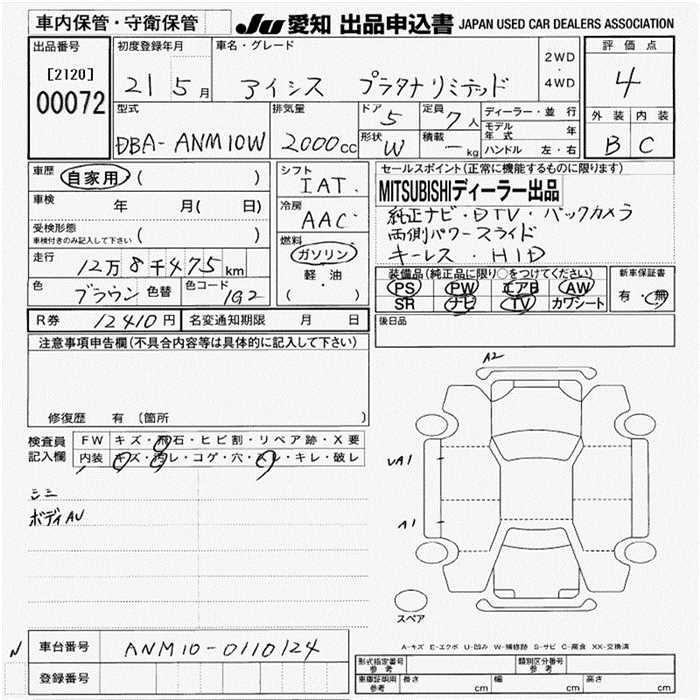 車内保管・守衛保管 JU 愛知 出品申込書 JAPAN USED CAR DEALERS ASSOCIATION
出品番号 初度登録年月 車名・グレード 評価点
[2120] 21 5月 アイシス プラタナリミテッド 2WD・4WD 4
00072 型式 排気量 ドア 5 定員 7人 ディーラー・並行 外装 内装
DBA-ANM10W 2000cc 形状 W 積載 ― kg モデル年式 年 B C
ハンドル 左・右
車歴 自家用 ( ) シフト IAT. セールスポイント(正常に機能するものに限ります)
車検 年 月(日) 冷房 AAC MITSUBISHIディーラー出品
受検形態 ( ) 純正ナビ・DTV・バックカメラ
車検付きのみ記入して下さい 燃料 両側パワースライド
走行 12万8千475km ガソリン キーレス・HID
色 ブラウン 色替 色コード 1G2 軽・油 装備品(純正品に限り○をつけてください) 新車保証書
( ) PS PW エアB AW 有・無
SR ナビ TV カワシート
R券 12410円 名変通知期限 月 日 後日品
注意事項申告欄(不具合内容等は具体的に記入して下さい)
A2
修復歴 有(箇所
検査員 FW キズ・飛石・ヒビ割・リペア跡・X要
記入欄 内装 キズ・汚レ・コゲ・穴・スレ・キレ・破レ
UA1
シミ
ボディAU
A1
スペア
N 車台番号 ANM10-0110124
A-キズ E-エクボ U-凹み W-補修跡 S-サビ C-腐食 XX-交換済
登録番号 形式指定番号 参考 類別区分番号 参考
車庫証明用 参考 長さ cm 幅 cm 高さ cm